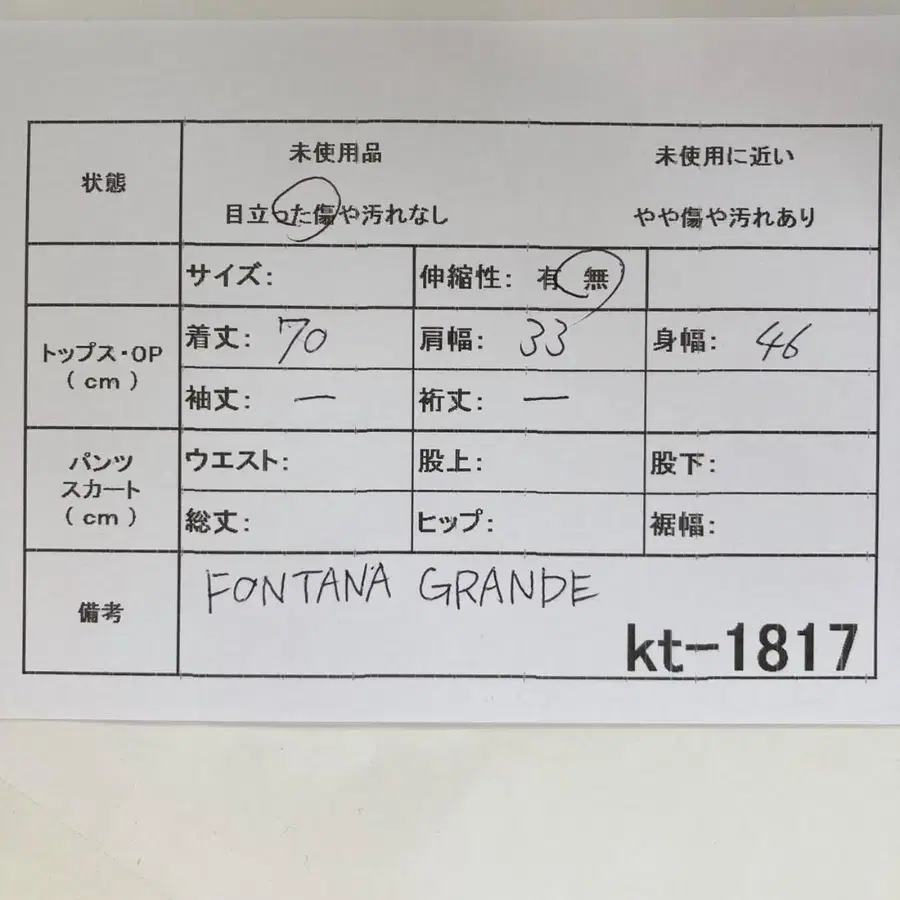 状態 未使用品 未使用に近い
目立った傷や汚れなし やや傷や汚れあり
サイズ: 伸縮性: 有 無
トップス・OP
(cm)
着丈: 70 肩幅: 33 身幅: 46
袖丈: ー 裄丈: ー
パンツ
スカート
(cm)
ウエスト: 股上: 股下:
総丈: ヒップ: 裾幅:
備考
FONTANA GRANDE
kt-1817